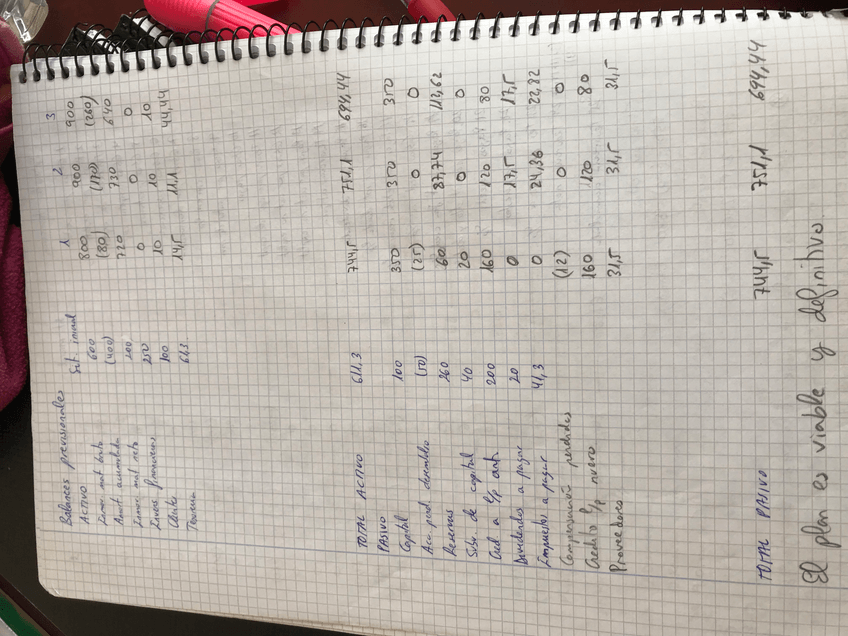 Balances previsionales
Sit. inicial 1 2 3
ACTIVO
Inmov. mat bruto 600 800 900 900
Amort. acumulada (400) (80) (170) (260)
Inmov. mat neto 200 720 730 640
Invers. financieras 250 0 0 0
100 10 10 10
Tesorería 61,3 14,5 11,1 44,44
TOTAL ACTIVO 611,3 744,5 751,1 694,44
PASIVO
Capital 100 350 350 350
Acc. pend. desembolso (50) (25) 0 0
Reservas 260 60 87,74 113,62
Subv. de capital 40 20 0 0
Cred. a l/p ant. 200 160 120 80
Dividendos a pagar 20 0 17,5 17,5
Impuestos a pagar 41,3 0 24,36 22,82
Compensación perdidas (12) 0 0
Credito l/p nuevo 160 120 80
Proveedores 31,5 31,5 31,5
TOTAL PASIVO 744,5 751,1 694,44
El plan es viable y definitivo.